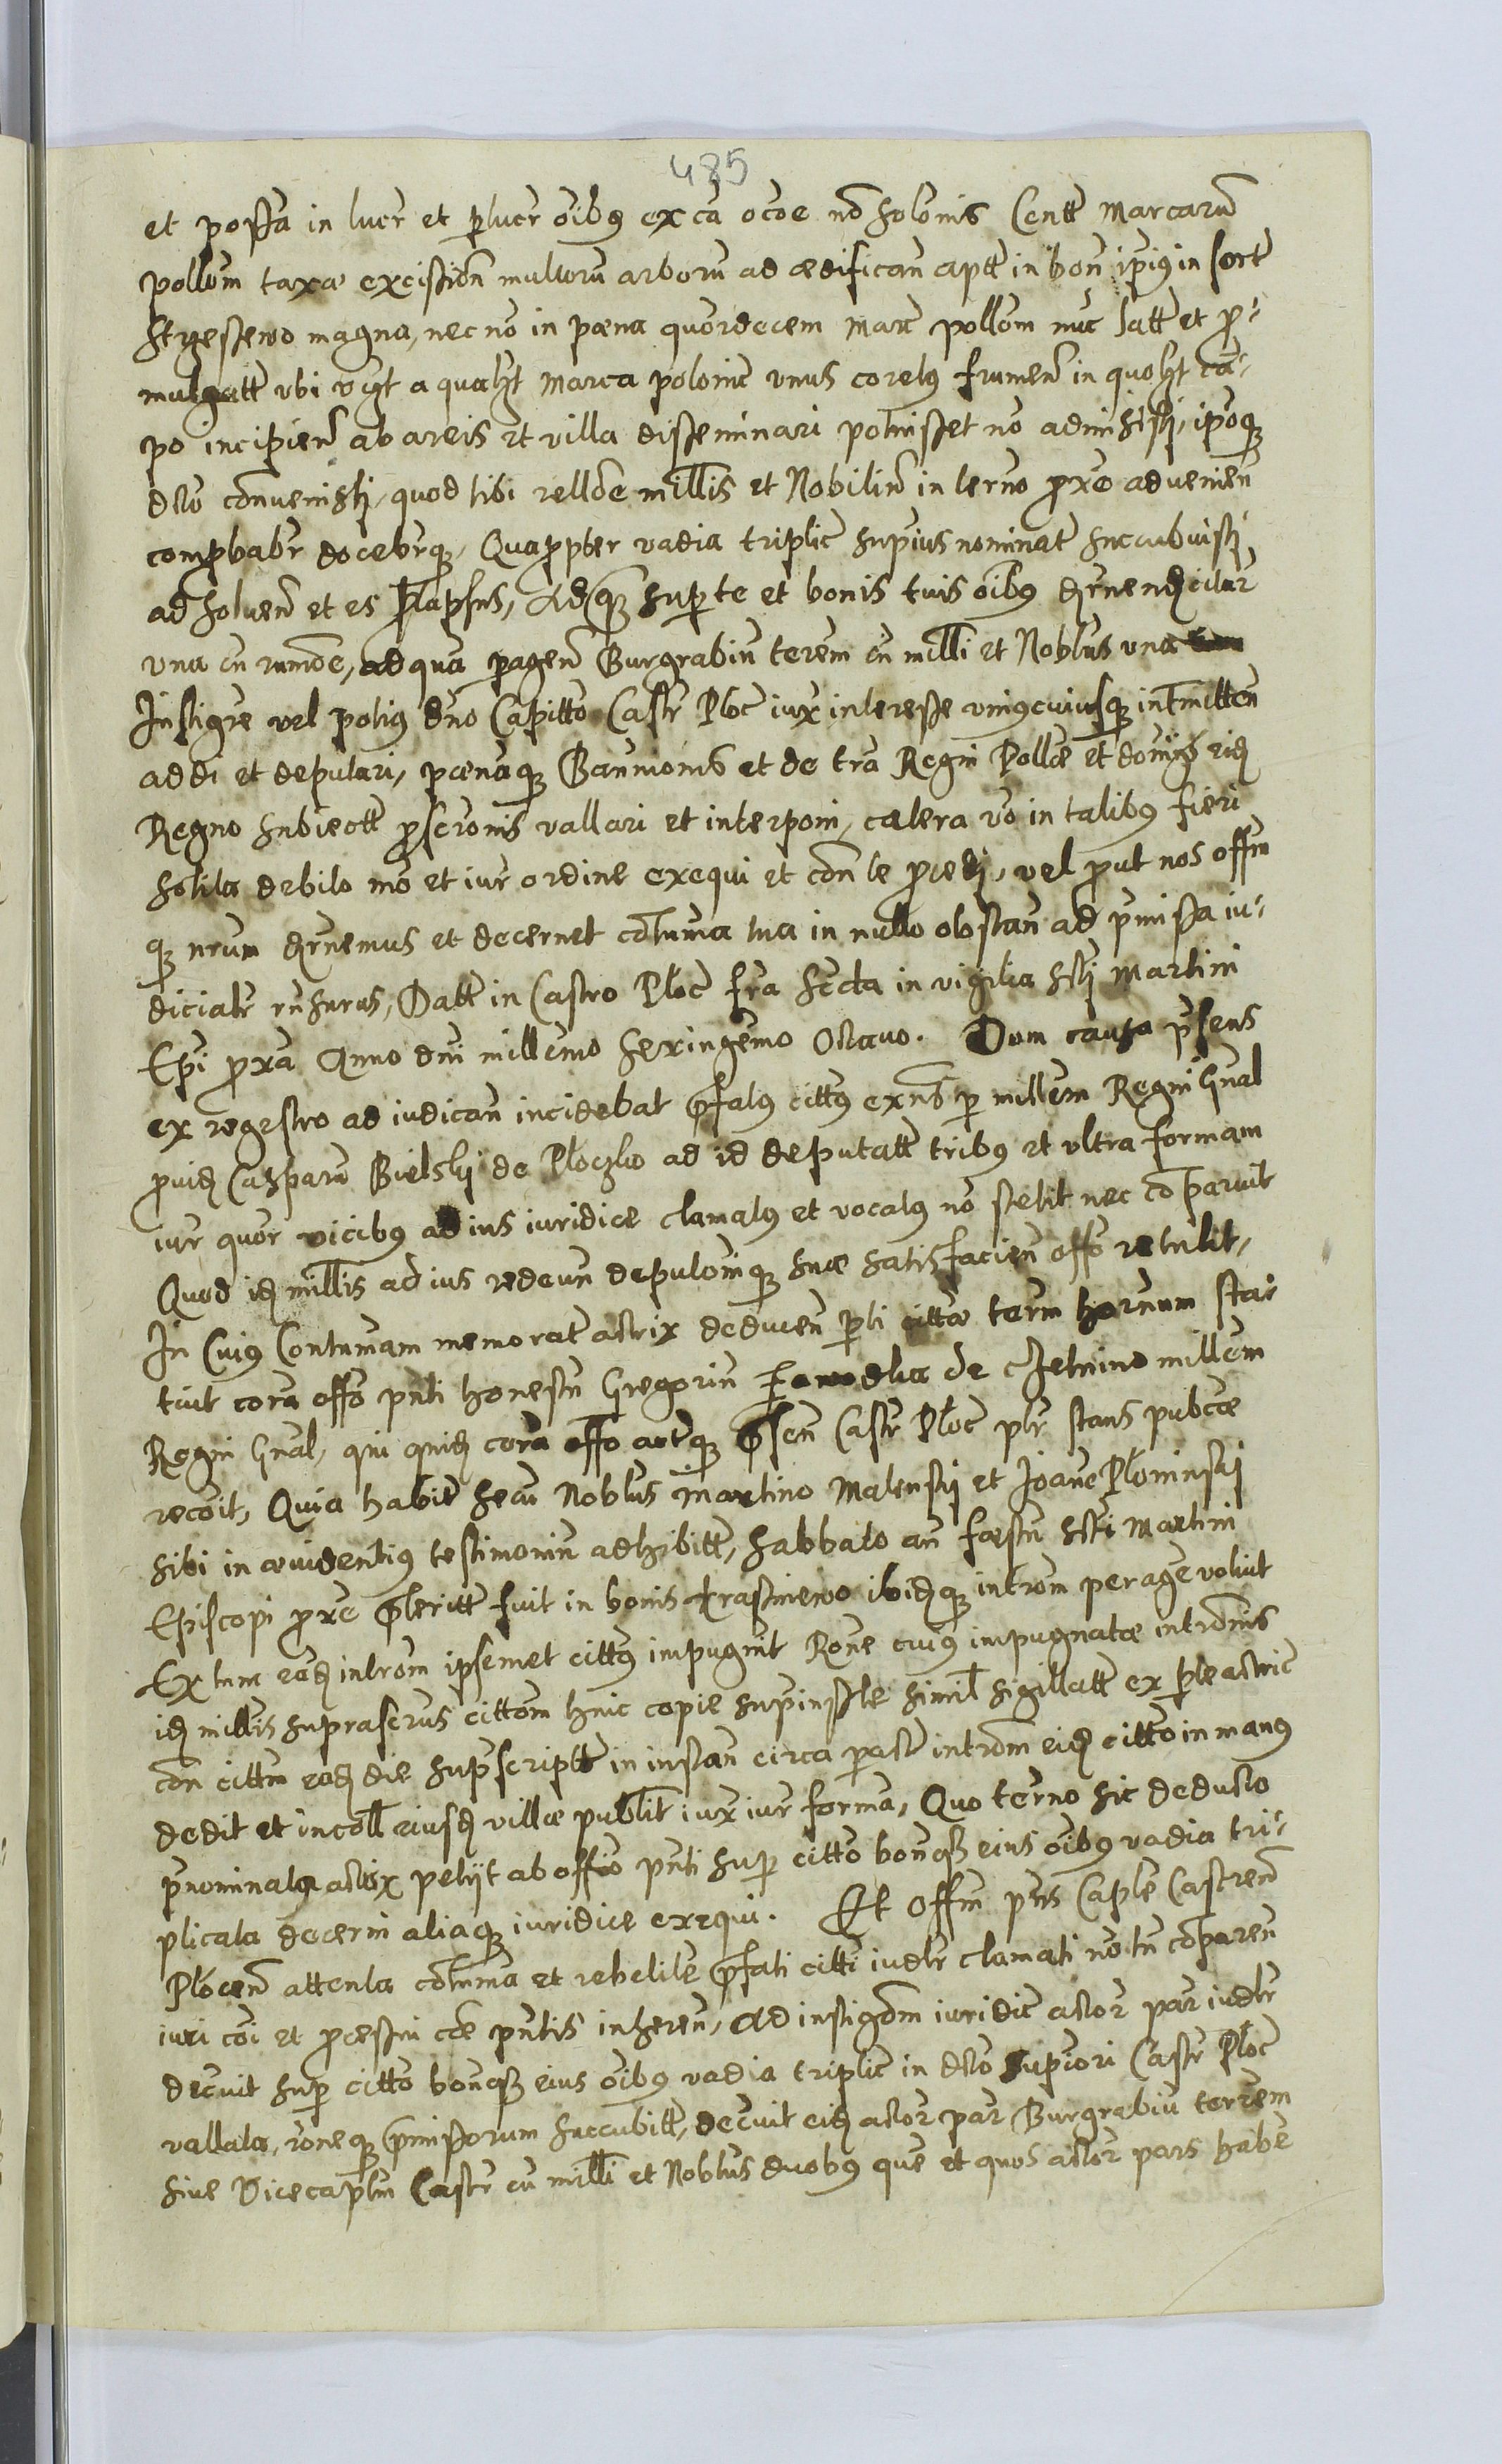 485
et possa in lucr et perlucr oibus ex ca ocoe no solonis Centt marcaru
pollom taxa excisiom multoru arboru ad aedifican aptt in bon ipius in sorte
magna, nec no in paena quordecem marc pollom nuc latt et pro-
mulgatt ubi a qualzt marca polonic unus coretus frumen in quolzt ca-
po incipien ab areis et villa disseminari potuisset no admisisti, ipoq
dcto convenisti, quod tibi rellone millis et Nobiliu in terno proxe advenien
comprobabr docebrq, Quapropter vadia triplic supius nominat succubuisti
ad solven et es prolapsus, Adq super te et bonis tuis oibus
una cu rumoe, ad qua peragen Burgrabiu terrem cu milli et Noblus una
Instigre vel potius dno Capitto Castr Ploc iux interesse uniuscuiusq intmitten
addi et deputari, paenaq Bannionis et de tra Regni Pollae et dominys eid
Regno subiectt proscronis vallari et interponi, caetera vo in talibus fieri
solita debito mo et iur ordine exequi et con te procedi, vel prout nos offm
q nrum dcernemus et decernet contuma tua in nullo obstan ad pmissa iu-
dicialr rnsurus, Datt in Castro Ploc fra secda in vigilia scti Martini
Epi proxa Anno dni millemo sexingemo Octavo. Dum causa psens
ex regestro ad iudican incidebat prefatus cittus exns per millem Regni Gnal
provid Casparu Bielsky de Ploczko ad id deputatt tribus et ultra formam
iur quor vicibus ad ius iuridice clamatus et vocatus no stetit nec coparuit
Quod id millis ad ius redeun depulomq suae satisfacien offo retulit,
In Cuius Contumam memorat actrix deducen perti citta term hornum sta-
tuit cora offo pnti honestu Gregoriu de millem
Regni Gnal, qui quid cora offo actq presen Castr Ploc plr stans publcae
recoit, Quia habit secu Noblus Martino Malensky et Joane Ploninsky
sibi in aevidentius testimoniu adhibitt, sabbato an faestu scti Martini
Episcopi proxe preteritt fuit in bonis ibidq introm peragere voluit
Ex tunc ead introm ipsemet cittus impugnit Rone cuius impugnatae intromis
id millis suprascrus cittom huic copie supinste simil sigillatt ex perte actric
con cittu ead die supscriptt in instan circa peractr introm eid citto in manus
dedit et incoll eiusd villae publit iux iur forma, Quo terno sic deducto
pnominata actrix petyt ab offio pnti sup citto bonqz eius oibus vadia tri-
plicata decerni aliaq iuridice exequi. Et Offm pns Caple Castren
Plocen attenta contuma et rebelile prefati citti iudlr clamati no tn coparen
iuri coi et processui cae pntis inheren, Ad instigom iuridic actor par iudlr
decvit sup citto bonqz eius oibus vadia triplic in dcto supiori Castr Ploc
vallata, roneq premissorum succubitt, decvit eid actor par Burgrabiu terrem
sive Vicecaplm Castr cu milli et Noblus duobus que et quos actor pars habe